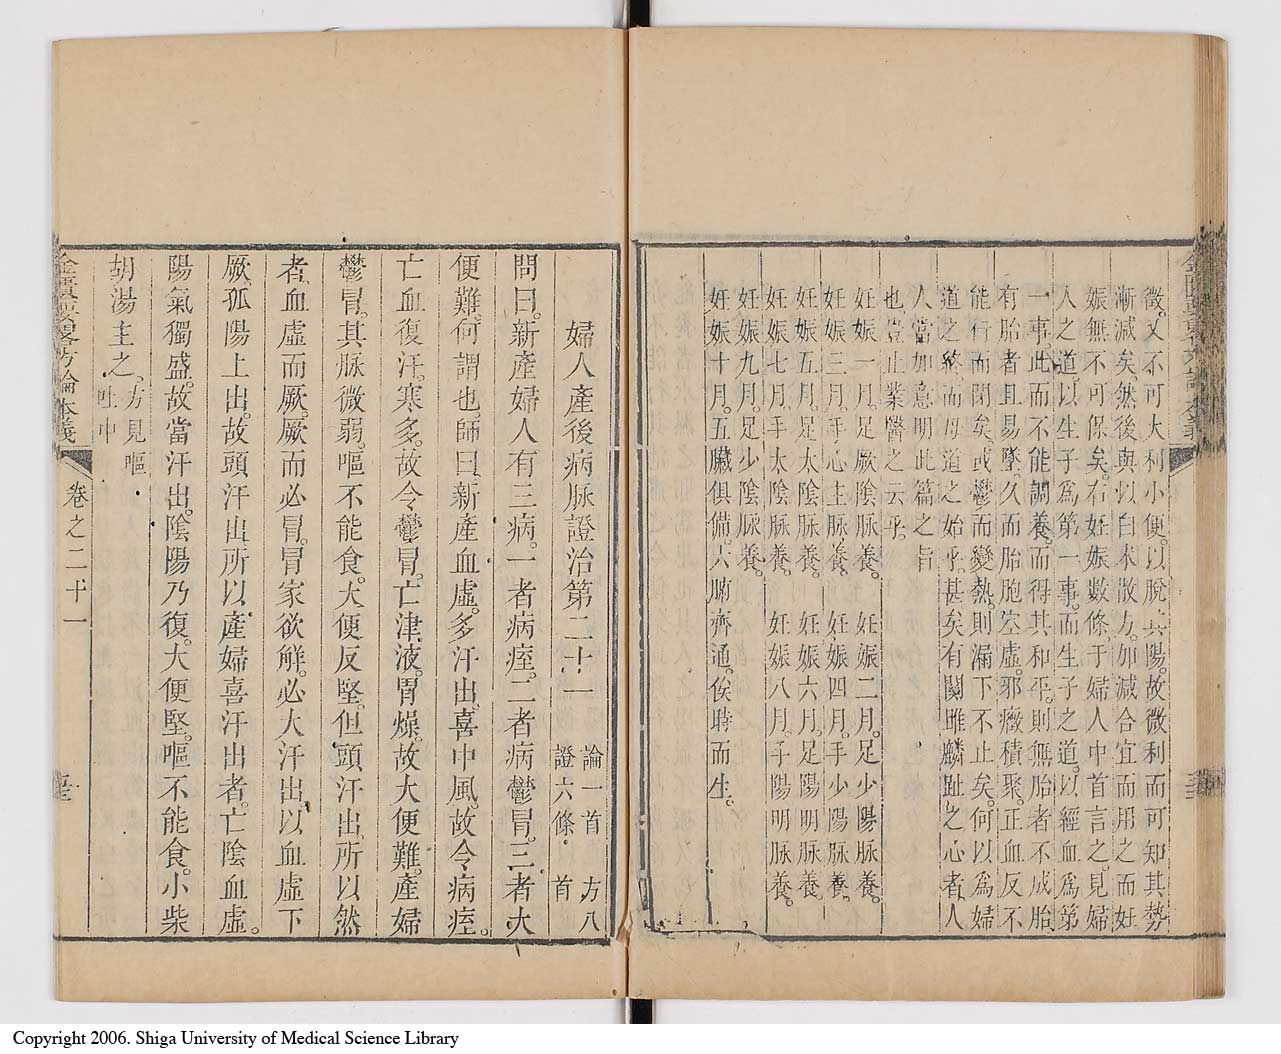 微又不可大利小便以脫其陽故微利而可知其勢
漸減矣然後與以白朮散方加減合宜而用之而妊
娠無不可保矣右妊娠數條于婦人中首言之見婦
人之道以生子爲第一事而生子之道以經血爲第
一事此而不能調養而得其和平則無胎者不成胎
有胎者且易墜久而胎胞空虛邪癥積聚正血反不
能行而閉矣或鬱而變熱則漏下不止矣何以爲婦
道之終而母道之始乎甚矣有關雎麟趾之心者人
人當加意明此篇之旨
也豈止業醫之云乎
妊娠一月足厥陰脉養 妊娠二月足少陽脉養
妊娠三月手心主脉養 妊娠四月手少陽脉養
妊娠五月足太陰脉養 妊娠六月足陽明脉養
妊娠七月手太陰脉養 妊娠八月手陽明脉養
妊娠九月足少陰脉養
妊娠十月五臟俱備六腑齊通俟時而生
婦人產後病脉證治第二十一 論一首 方八首 證六條
問曰新產婦人有三病一者病痓二者病鬱冒三者大
便難何謂也師曰新產血虛多汗出喜中風故令病痓
亡血復汗寒多故令鬱冒亡津液胃燥故大便難產婦
鬱冒其脉微弱嘔不能食大便反堅但頭汗出所以然
者血虛而厥厥而必冒冒家欲解必大汗出以血虛下
厥孤陽上出故頭汗出所以產婦喜汗出者亡陰血虛
陽氣獨盛故當汗出陰陽乃復大便堅嘔不能食小柴
胡湯主之 方見嘔吐中
金匱要畧方論本義 卷之二十一
Copyright 2006. Shiga University of Medical Science Library